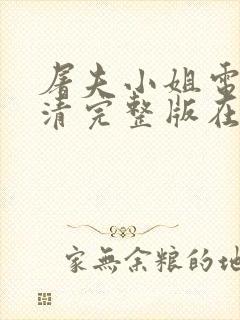 屠夫小姐电
清完整版在
家無余粮的地